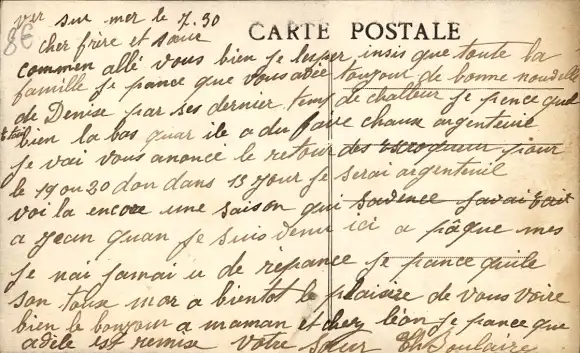 ver sur mer le 7.30
8€
CARTE POSTALE
cher frère et sœur
commen allé vous bien je l'esper insis que toute la
famille je pance que vous avée toujour de bonne nouvelle
de Denise par ses dernier temp de challeur je pence quil
bien la bas quar ile a du faire chaux argenteuil
je vai vous anoncé le retour des pour
le 19 ou 20 don dans 15 jour je serai argenteuil
voi la encore une saison qui savai fait
a jean quan je suis venu ici a pâque mes
je nai jamai u de répance je pance quile
son tous mor a bientot le plaisire de vous voire
bien le bonjour a maman et chez léon je pance que
adèle est remise votre sœur Boulaire